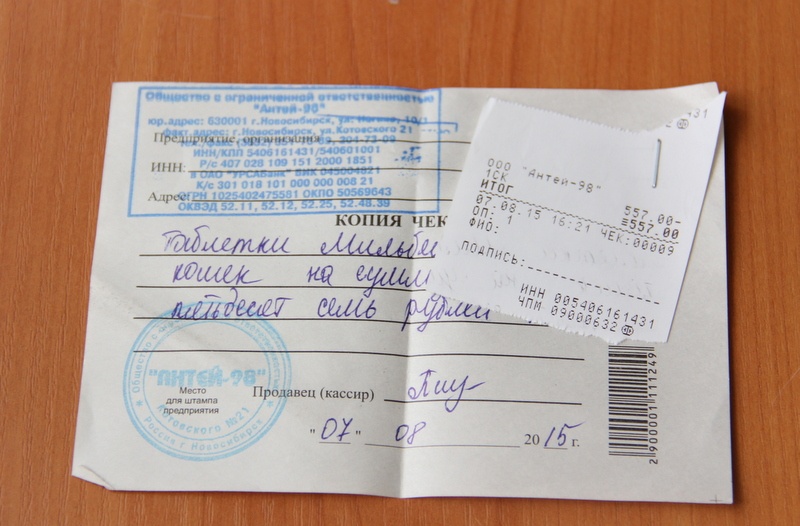 Общество с ограниченной ответственностью
"Антей-98"
юр.адрес: 630001 г.Новосибирск, ул.
факт.адрес: г.Новосибирск, ул.Котовского 21
Предприятие, организация
304-73-09
ИНН/КПП 5406161431/540601001
ИНН:
Р/с 407 028 109 151 2000 1851
в ОАО "УРСАБанк" БИК 045004821
К/с 301 018 101 000 000 008 21
Адрес:
ОГРН 1025402475581 ОКПО 50569643
ОКВЭД 52.11, 52.12, 52.25, 52.48.39
КОПИЯ ЧЕК
Таблетки Мильбе
кошек на сумм
пятьдесят семь рублей
Продавец (кассир)
"07" 08 2015 г.
Место
для штампа
предприятия
"АНТЕЙ-98"
Котовского №21
Россия г. Новосибирск
2 900001 111249
1431
ООО "Антей-98"
1СК 557.00-
ИТОГ ≡557.00
07.08.15 16:21 ЧЕК:00009
ОП: 1
ФИО:
ПОДПИСЬ:
ИНН 005406161431
ЧПМ 09000632